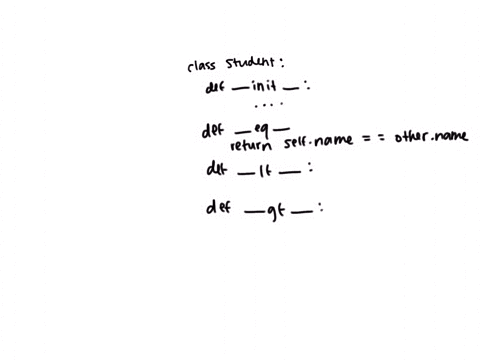 class Student:
def __init__:
....
def __eq__
return self.name == other.name
def __lt__:
def __gt__: